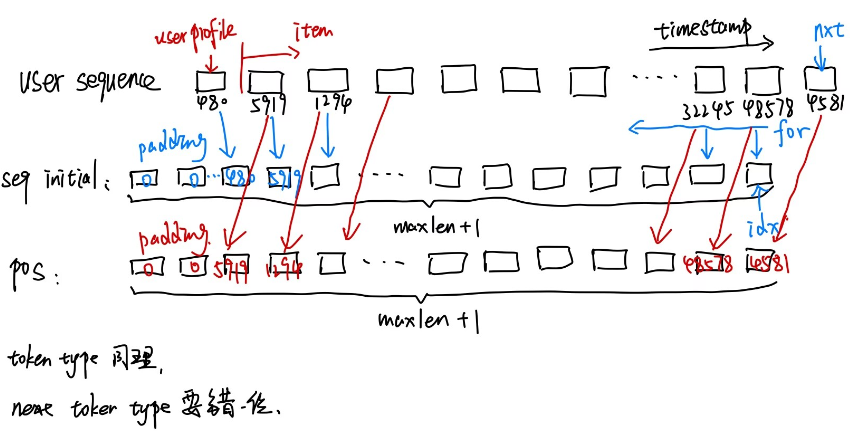 userprofile item timestamp nxt
user sequence ·····
480 5919 1294 32245 48578 4581
padding for
seq initial: 0 0 ··· 480 5919 ····
maxlen+1 idx
padding
pos: 0 0 5919 1294 ··· 48578 4581
maxlen+1
token type 同理.
next token type 要错一位.